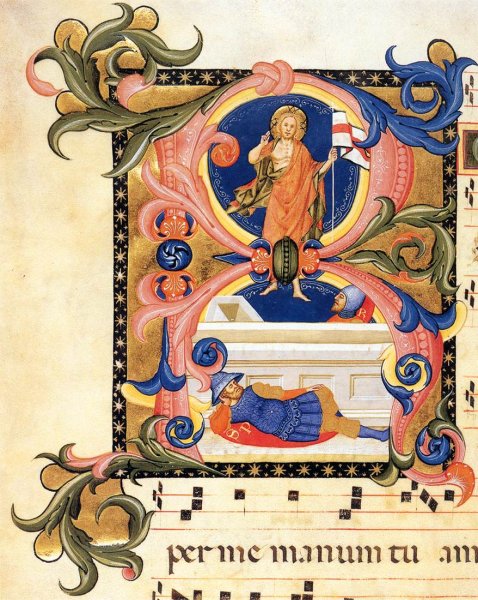 R
R
S P
per me manum tu am